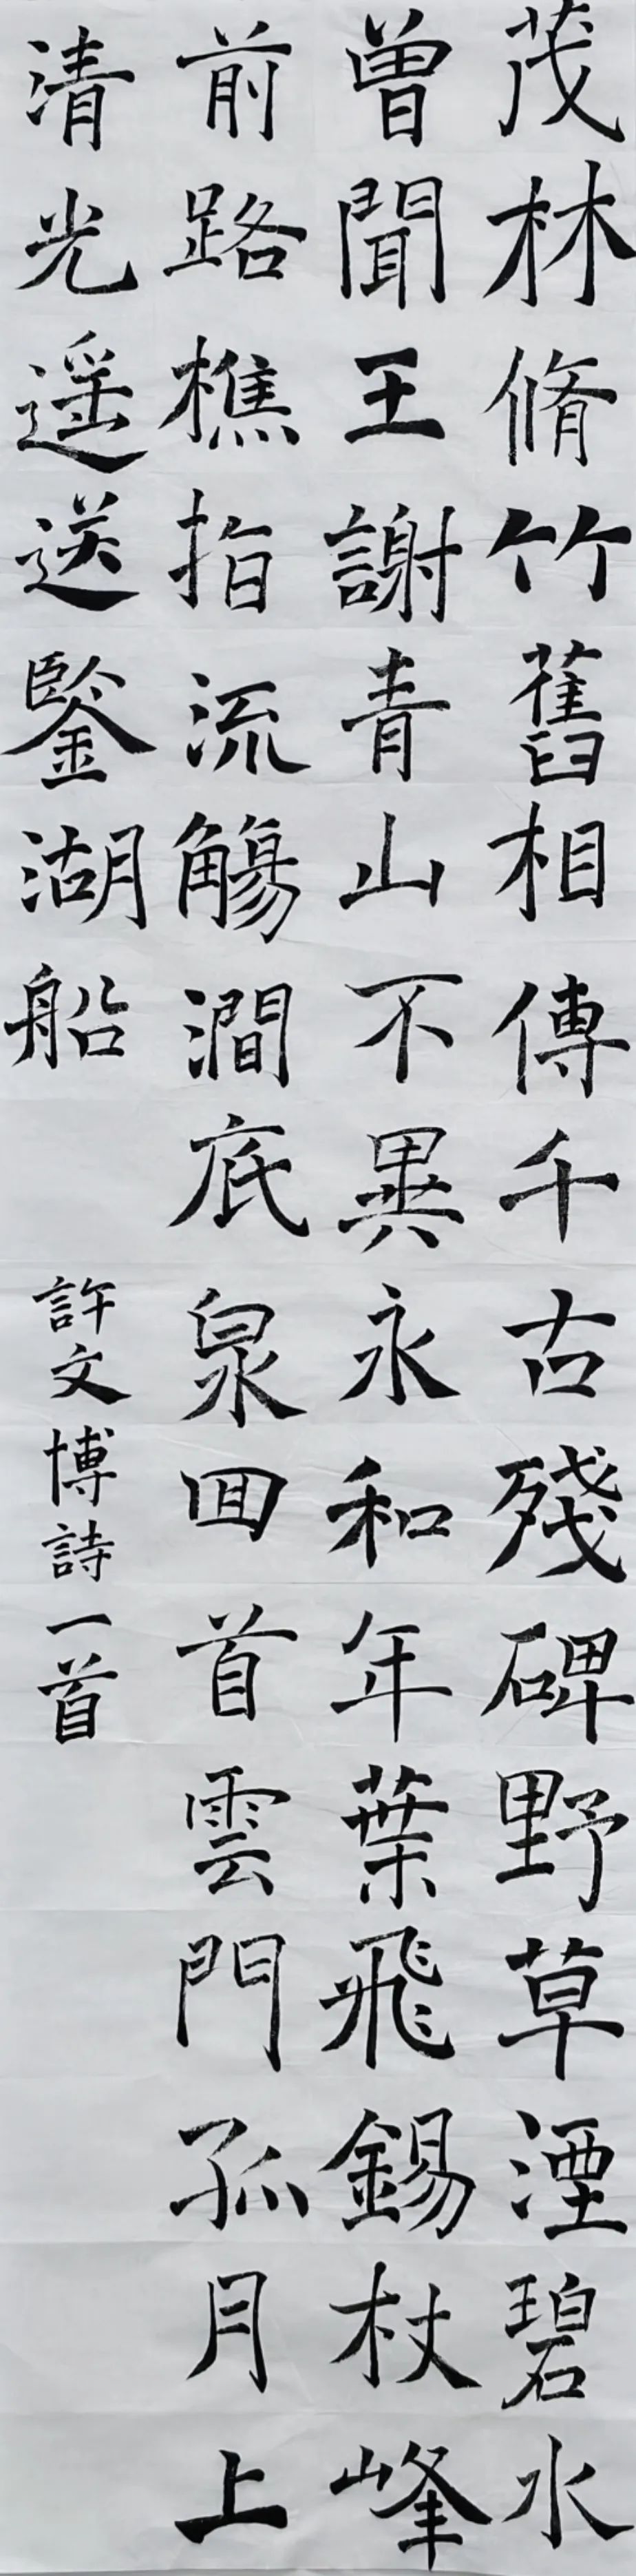 茂林脩竹舊相傳千古殘碑野草湮碧水
曾聞王謝青山不異永和年葉飛錫杖峰
前路樵指流觴澗底泉回首雲門孤月上
清光遥送鑒湖船
許文博詩一首